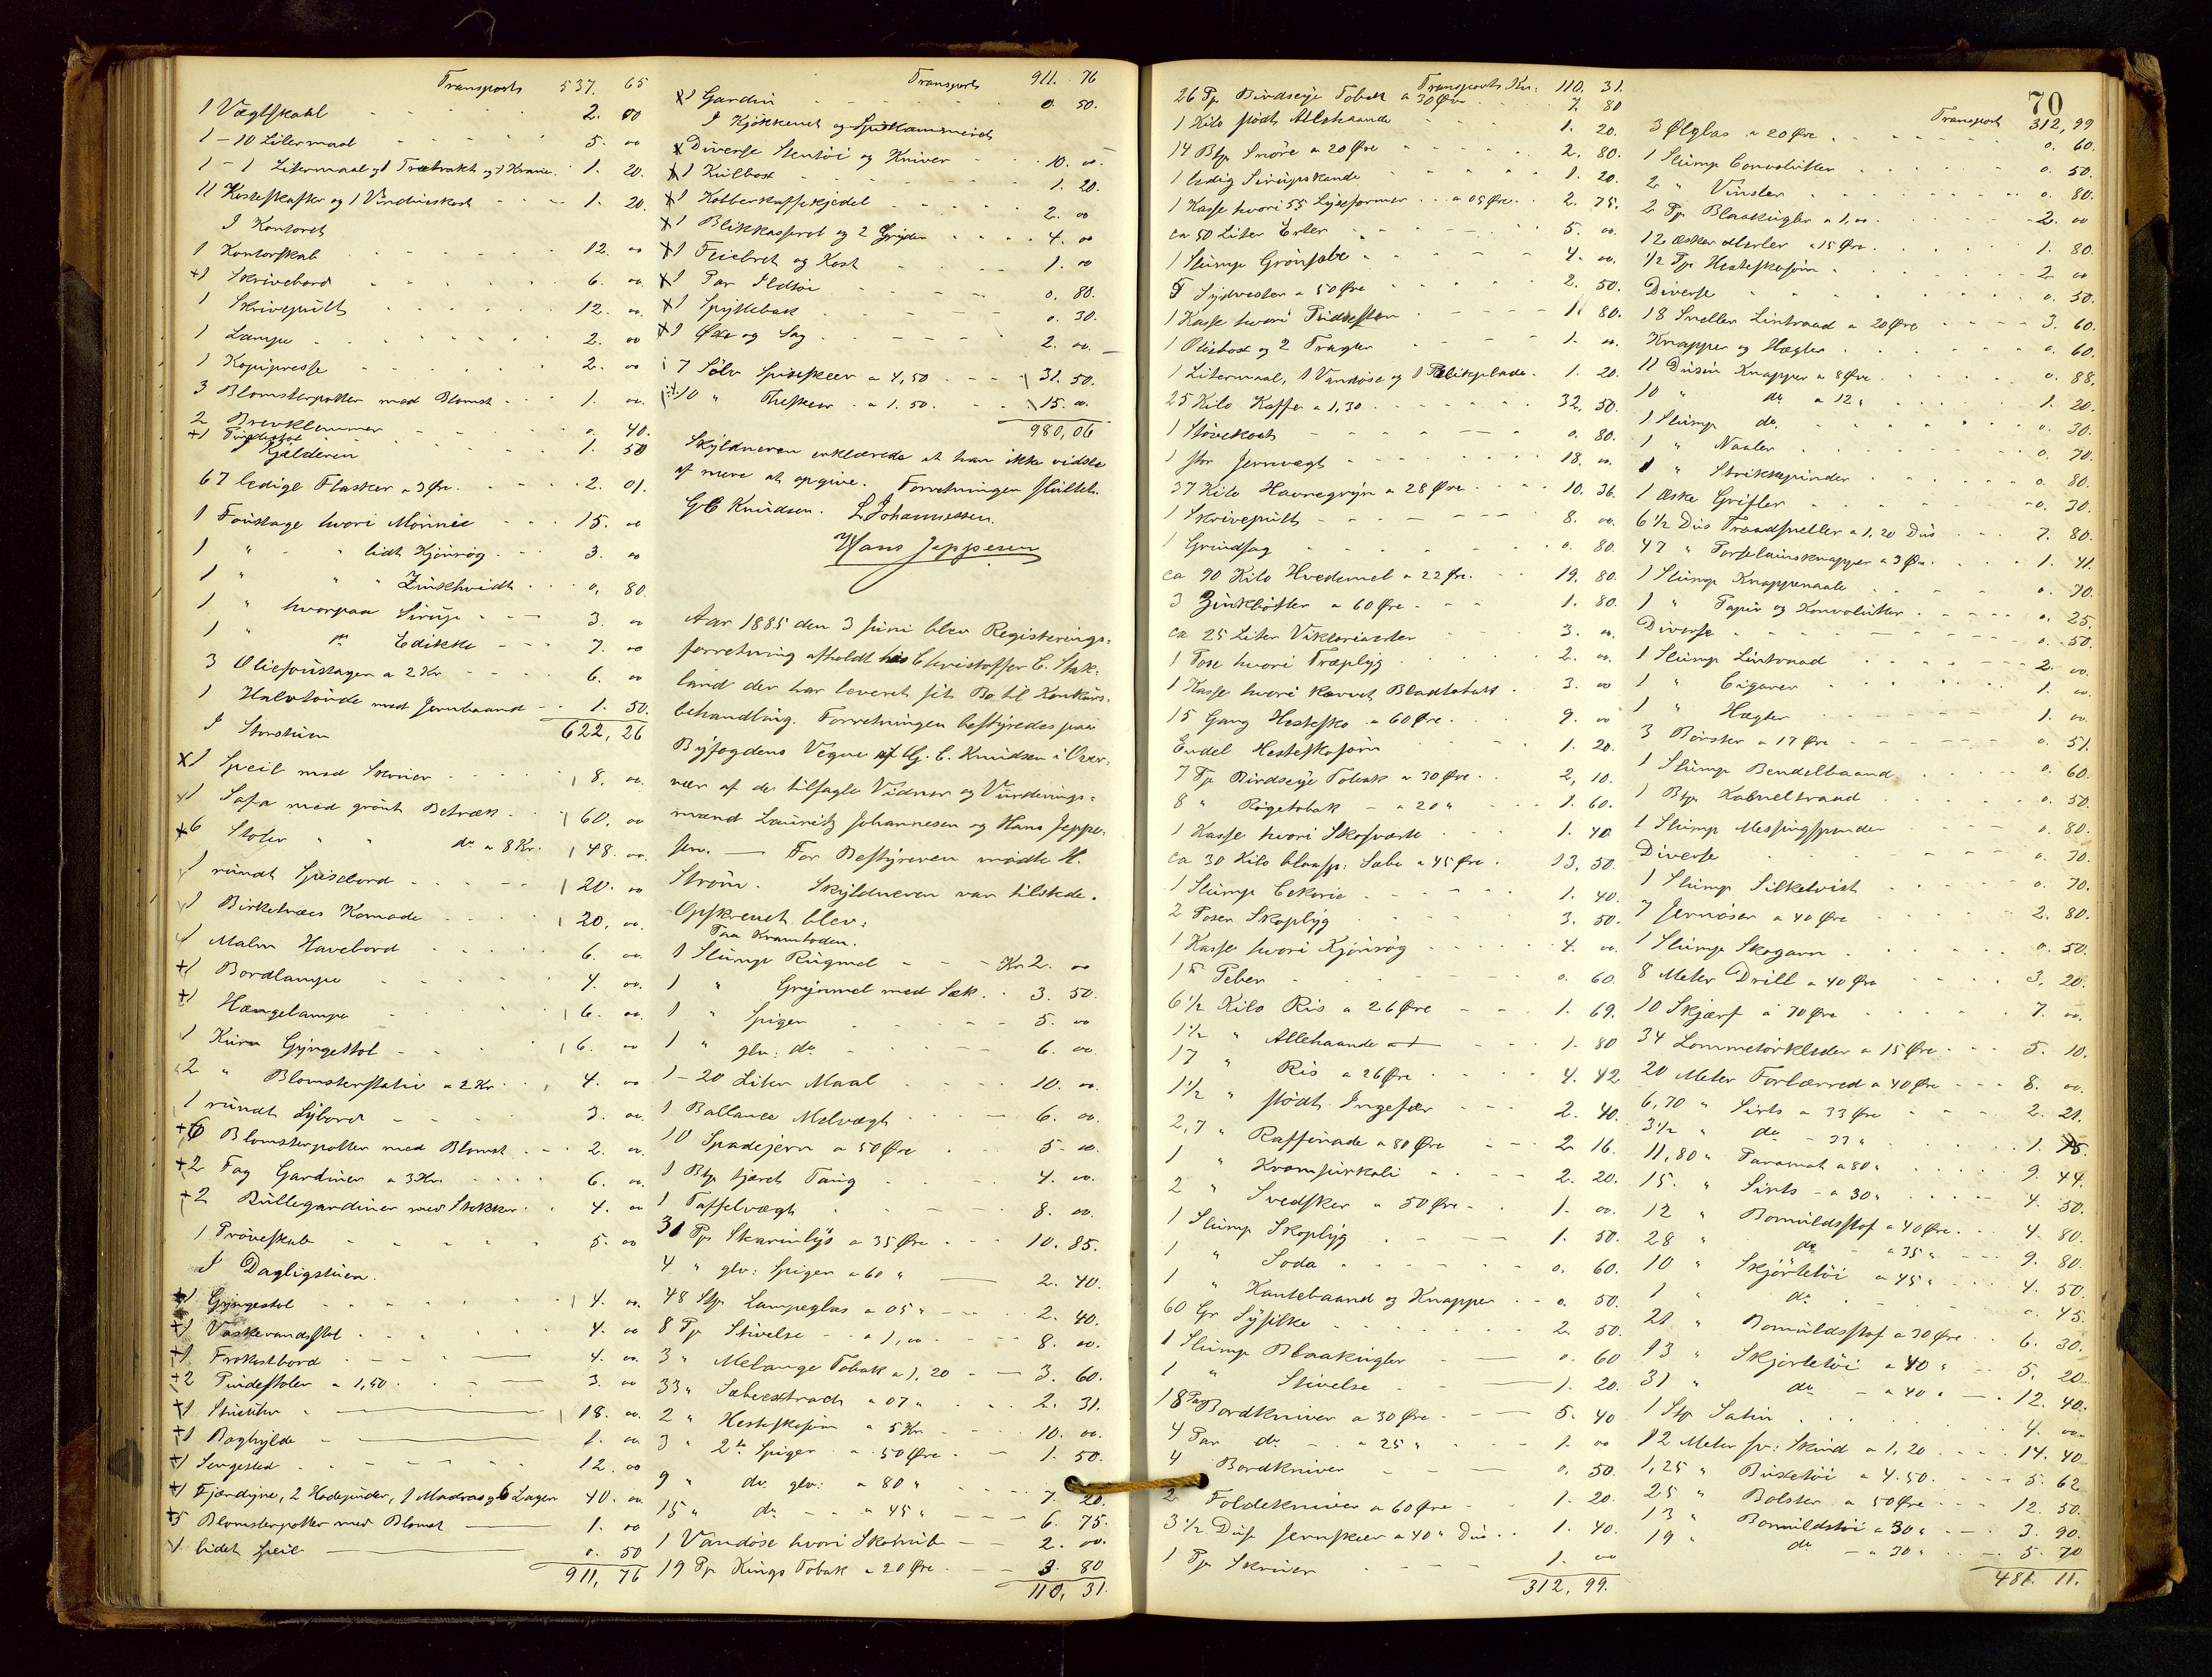 Transport 537. 65
1 Vægtskaal 2. 00
1 - 10 Litermaal 5. 00
1 - 1 Litermaal og 1 Trætrakt og 1 Krane 1. 20.
11 Kosteskafter og 1 Vinduiskost 1. 20
I Kontoret
1 Kontorskab 12. 00
+1 Skrivebord 6. 00
1 Skrivepult 12. 00
1 Lampe 2. 00
1 Kopipresse 2. 00
3 Blomsterpotter med Blomst 1. 00
2 Brevklemmer 0. 40.
+1 Pindestol 1. 50
I Kjelderen
67 ledige Flasker a 3 Øre 2. 01.
1 Foustage hvori Mønnie 15. 00
1 " " lidt Kjønrøg 3. 00
1 " " " Zinkhvidt 0, 80
1 " hvorpaa Sirup 3. 00
1 " do Edikke 7. 00
3 Oliefoustager a 2 Kr 6. 00
1 Halvtønde med Jernbaand 1. 50.
622, 26
I Storstuen
x1 Speil med Skruer 8. 00
1 Sofa med grønt Betræk 60, 00
x6 Stoler " " do a 8 Kr. 48. 00
1 rundt Spisebord 20. 00
1 Birketræes Komode 20, 00
1 Malm Havebord 6. 00
+1 Bordlampe 4. 00
+1 Hængelampe 6. 00
1 Kurv Gyngestol 6. 00
2 " Blomsterstativ a 2 Kr. 4. 00
1 rundt Sybord 3. 00
+6 Blomsterpotter med Blomst 2. 00
+2 Fag Gardiner a 3 Kr. 6. 00
+2 Rullegardiner med Stokker 4. 00
1 Prøveskab 5. 00
I Dagligstuen.
+1 Gyngestol 4. 00
+1 Vaskevandsstol 4. 00
+1 Frokostbord 4. 00
+2 Pindestoler a 1,50 3. 00
+1 Stueuhr 18. 00
+1 Boghylde 1. 00
+1 Sengested 12. 00
+1 Fjærdyne, 2 Hodepuder, 1 Madras og 6 Lagen 40. 00
+5 Blomsterpotter med Blomst 1. 00
1 lidet Speil 0. 50
911, 76
Transport 911. 76
x1 Gardin 0. 50.
I Kjøkkenet og Spiskammeret
x Diverse Stentøi og Kniver 10. 00
x1 Kulbost 1. 20.
x1 Kobberkaffekjedel 2. 00
x1 Blikkasserol og 2 Gryder 4. 00
x1 Feiebret og Kost 1. 00
x1 Par Ildtøi 0. 80.
x1 Spyttebak 0. 30.
x1 Øxe og Sag 2. 00
7 Sølv Spiseskeer a 4,50 31. 50.
10 " Theskeer a 1. 50. 15. 00
980,06
Skyldneren erklærede at han ikke vidste
af mere at opgive. Forretningen sluttet.
G C Knudsen. L Johannessen.
Hans Jeppesen
Aar 1885 den 3 Juni blev Registerings-
forretning afholdt hos Christoffer C. Stak-
land der har leveret sit Bo til Konkurs-
behandling. Forretningen bestyredes paa
Byfogdens Vegne af Gj. C. Knudsen i Over-
vær af de tilsagte Vidner og Vurderings-
mænd Lauritz Johannesen og Hans Jeppe-
sen. — For Bestyreren mødte H.
Strøm. Skyldneren var tilstede.
Opskrevet blev:
Paa Kramboden.
1 Slump Rugmel Kr 2. 00
1 " Grynmel med Sæk 3. 50.
1 " Spiger 5. 00
1 " glv: do 6. 00.
1 - 20 Liter Maal 10. 00.
1 Ballance Melvægt 6. 00.
10 Spadejern a 50 Øre 5. 00.
1 Btp tjæret Taug 4. 00.
1 Taffelvægt 8. 00.
31 Pp Stearinlys a 35 Øre 10. 85.
4 " glv: Spiger a 60 " 2. 40.
48 Stp Lampeglas a 05 " 2. 40.
8 Pp Stivelse a 1,00 8. 00.
3 " Melange Tobak a 1, 20 3. 60.
33 " Sæbeextract a 07 " 2. 31.
2 " Hesteskosøm a 5 Kr. 10. 00.
3 " 2te Spiger a 50 Øre 1. 50.
9 " do glv: a 80 " 7. 20.
15 " do " a 45 " 6. 75.
1 Vandøse hvori Skokrub 2. 00.
19 Pp Kings Tobak a 20 Øre 3. 80
110, 31.
Transport Kr. 110. 31.
26 Pp Birdseye Tobak a 30 Øre 7. 80
1 Kilo stødt Allehaande 1. 20.
14 Btp Snøre a 20 Øre 2. 80.
1 ledig Sirupskande 1. 20.
1 Kasse hvori 55 Lyseformer a 05 Øre 2. 75.
ca 50 Liter Erter 5. 00.
1 Slump Grønsæbe 4. 00.
5 Sydvester a 50 Øre 2. 50.
1 Kasse hvori Pudresten 1. 80.
1 Oliebox og 2 Tragter 1. 00.
1 Litermaal, 1 Vandøse og 1 Blikplade 1. 20.
25 Kilo Kaffe a 1,30 32, 50.
1 Støvekost 0. 80.
1 stor Jernvægt 18. 00.
37 Kilo Havregryn a 28 Øre 10. 36.
1 Skrivepult 8. 00.
1 Grindsag 0. 80.
ca 90 Kilo Hvedemel a 22 Øre. 19. 80.
3 Zinkbøtter a 60 Øre 1. 80.
ca 25 Liter Viktoriaerter 3. 00.
1 Pose hvori Træplyg 2. 00.
1 Kasse hvori karvet Bladtobak 3. 00
15 Gang Hestesko a 60 Øre 9. 00
Endel Hesteskosøm 1. 20.
7 Pp Birdseye Tobak a 30 Øre 2, 10.
8 " Røgetobak - a 20 " 1. 60.
1 Kasse hvori Skosværte 1. 40
ca 30 Kilo blaasp: Sæbe a 45 Øre 13, 50.
1 Slump Cekorie 1. 40.
2 Poser Skoplyg 3. 50.
1 Kasse hvori Kjønrøg 4. 00.
1 " Peber 0. 60.
6 1/2 Kilo Ris a 26 Øre 1. 69.
1 1/2 " Allehaande 1. 80
17 " Ris a 26 Øre 4. 42
1 1/2 " stødt Ingefær 2. 40.
2,7 " Raffinade a 80 Øre 2. 16.
1 " Kromsurkali 2. 20.
2 " Svedsker a 50 Øre 1. 00.
1 Slump Skoplyg 1. 50.
1 " Soda 0. 60.
1 " Kantebaand og Knapper 0. 50.
60 Gr Sysilke 2. 50.
1 Slump Blaakugler 0. 60
1 " Stivelse 1. 20.
18 Par Bordkniver a 30 Øre 5. 40
4 Par do a 25 " 1. 00
4 Bordkniver 0. 50.
2 Foldekniver a 60 Øre 1. 20
3 1/2 Dus Jernskeer a 40 " Dus 1. 40.
1 Pp Skruer 1. 00
312, 99.
70
Transport 312, 99
3 Ølglas a 20 Øre 0. 60.
1 Slump Convolutter 0. 50.
2 " Vinsler 0. 80.
2 Pp Blaakugler a 1,00 2. 00
12 Æsker Merler a 15 Øre 1. 80.
1/2 Pp Hesteskosøm 2. 00
Diverse 0. 50.
18 Sneller Lintraad a 20 Øre 3. 60.
Knapper og Hægter 0. 60.
11 Dusin Knapper a 8 Øre 0. 88.
10 " do a 12 " 1. 20.
1 Slump do 0. 30.
1 " Naaler 0. 70.
1 " Strikkepinder 0. 80.
1 Æske Grifler 0. 30.
6 1/2 Dus Traadsneller a 1,20 Dus 7. 80.
47 " Porselainsknapper a 3 Øre. 1. 41.
1 Slump Knappenaale 0. 70.
1 " Papir og Konvolutter 0. 25.
Diverse 0. 50.
1 Slump Lintraad 2. 00.
1 " Cigarer 1. 00.
1 " Hægter 1. 00.
3 Børster a 17 Øre 0. 51.
1 Slump Bendelbaand 0. 60.
1 Btp Kabneltraad 0. 50.
1 Slump Messingspunder 0. 80.
Diverse 0. 70.
1 Slump Silketvist 0. 70.
7 Jernøser a 40 Øre 2. 80.
1 Slump Skogarn 0. 50.
8 Meter Drill a 40 Øre 3. 20.
10 Skjærf a 70 Øre 7. 00.
34 Lommetørklæder a 15 Øre 5. 10.
20 Meter Forlærred a 40 Øre 8. 00.
6,70 " Sirts a 33 Øre 2. 21.
3 1/2 " do - 33 " 1. 15.
11,80 " Paramat a 80 " 9. 44.
15. " Sirts - a 30 " 4. 50.
12 " Bomuldsstof a 40 Øre 4. 80.
28 " do a 35 " 9. 80.
10 " Skjørtetøi a 45 " 4. 50.
1 " do 0. 45.
21 " Bomuldsstof a 30 Øre 6. 30.
13 " Skjortetøi a 40 " 5. 20
31 " do - a 40 " 12. 40.
1 Stp Satin 4. 00
12 Meter sv: Skind a 1, 20 14. 40
1,25 " Buxetøi a 4.50. 5. 62
25 " Bolster a 50 Øre 12. 50.
13 " Bomuldstøi a 30 " 3. 90.
19 " do - a 30 " 5. 70
481. 11.